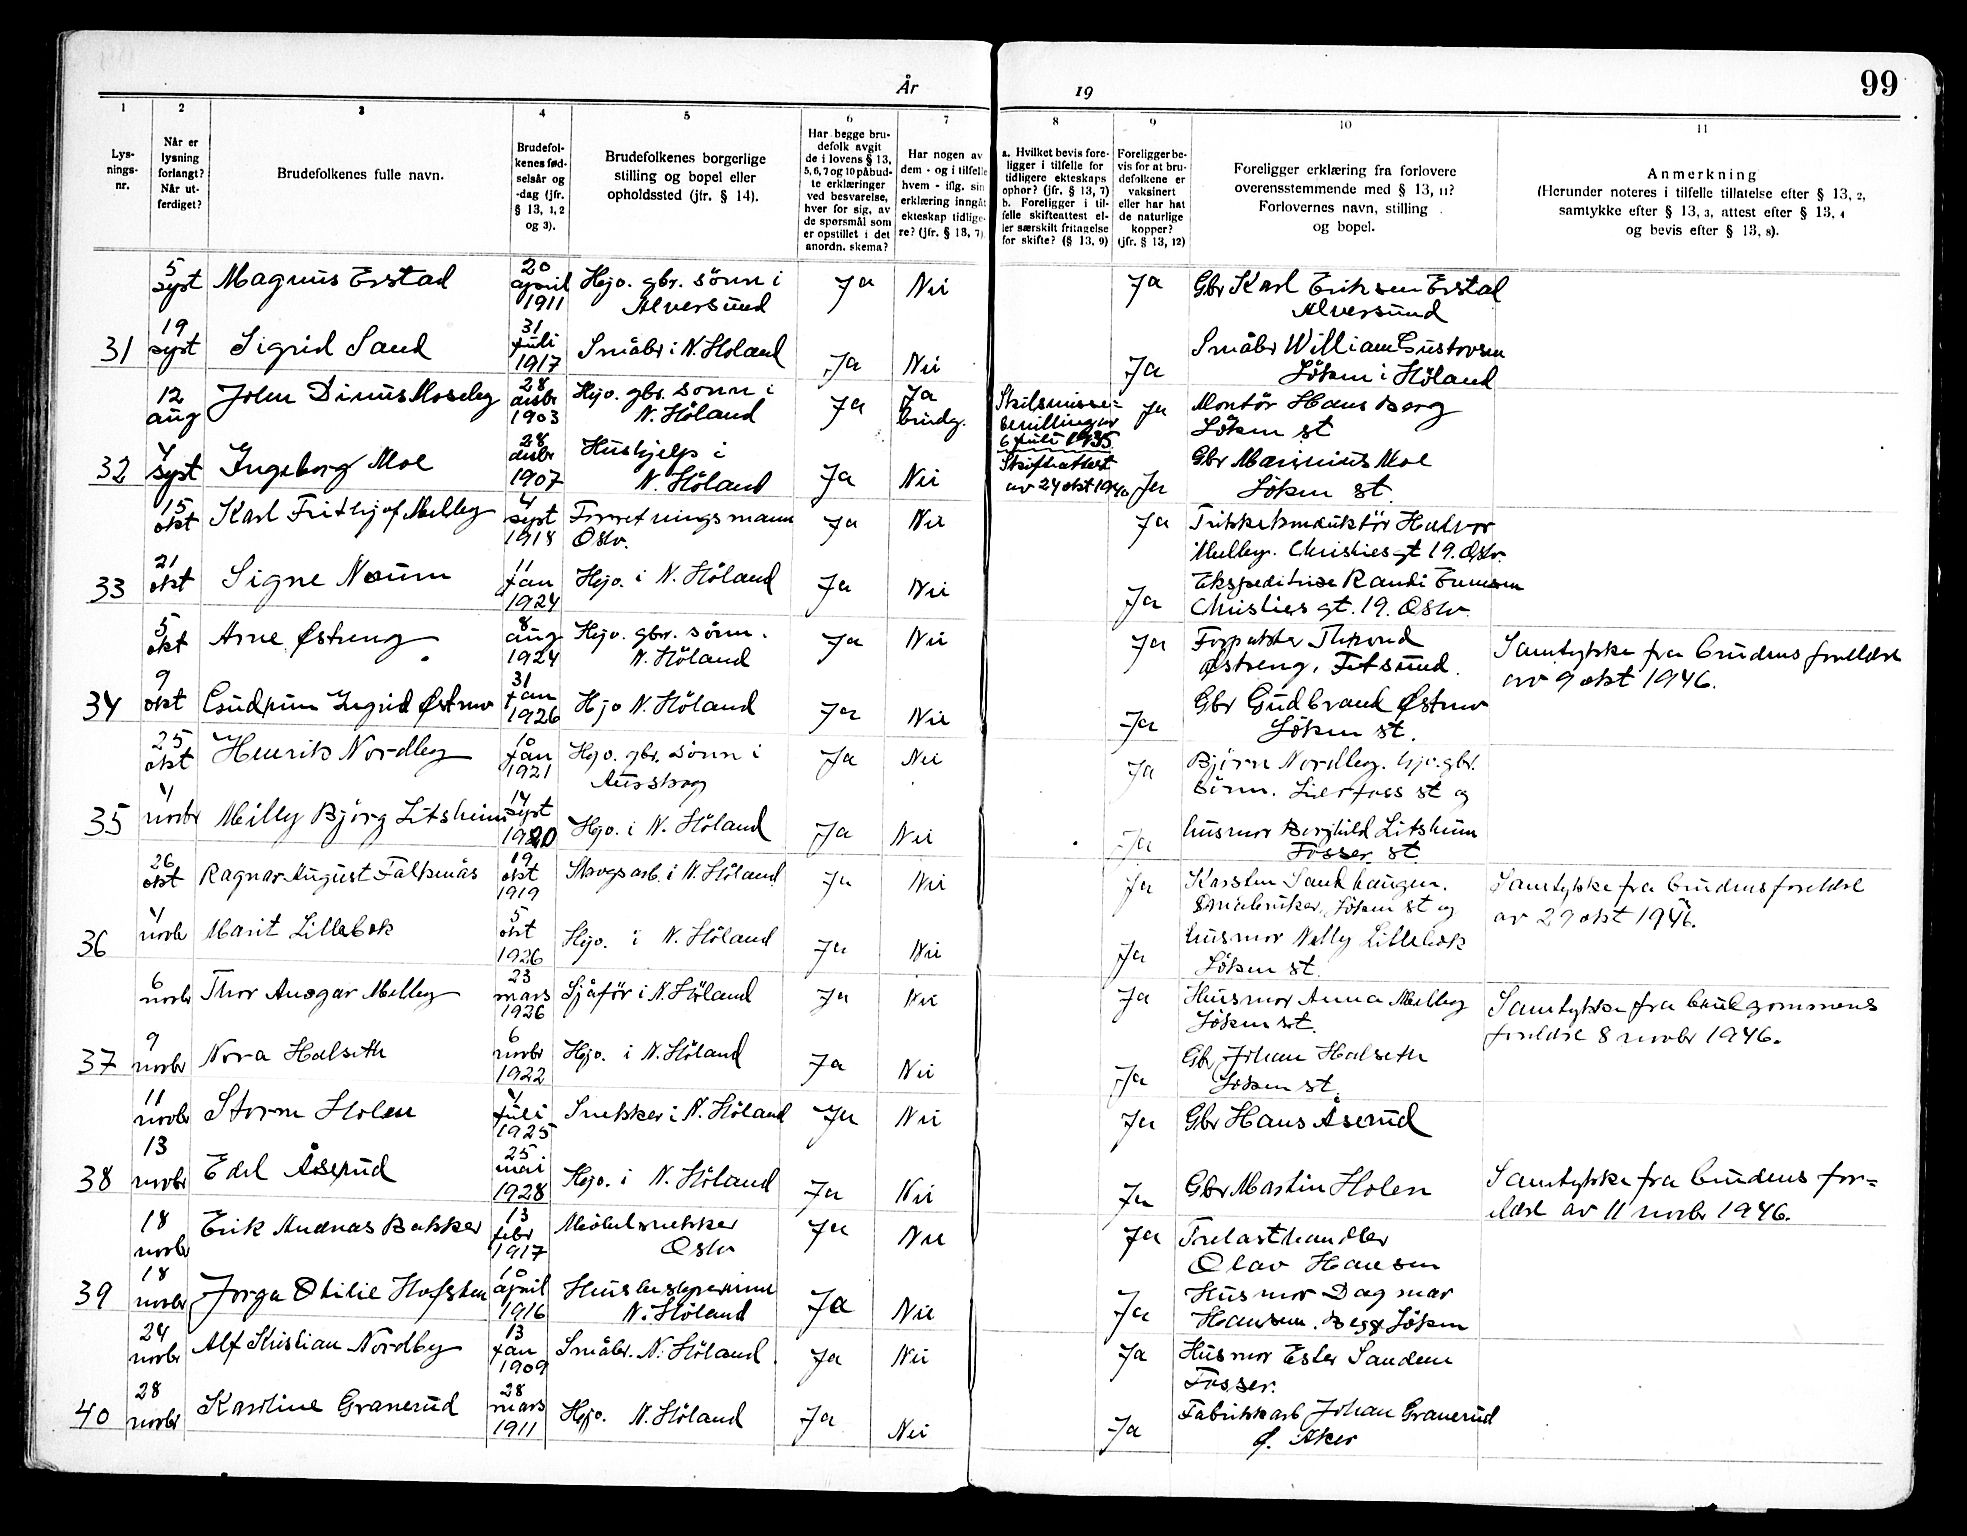 99
År
19
1
2
3
4
5
6
7
8
9
10
11
Lys-
nings-
nr.
Når er
lysning
forlangt?
Når ut-
ferdiget?
Brudefolkenes fulle navn.
Brudefol-
kenes fød-
selsår og
-dag (jfr.
§ 13, 1, 2
og 3).
Brudefolkenes borgerlige
stilling og bopel eller
opholdssted (jfr. § 14).
Har begge bru-
defolk avgit
de i lovens § 13,
5, 6, 7 og 10 påbud-
te erklæringer
ved besvarelse,
hver for sig, av
de spørsmål som
er opstillet i det
anordn. skema?
Har nogen av
dem - og i tilfelle
hvem - iflg. sin
erklæring inngåt
ekteskap tidlige-
re? (jfr. § 13, 7)
a. Hvilket bevis fore-
ligger i tilfelle for
tidligere ekteskaps
ophør? (jfr. § 13, 7)
b. Foreligger i til-
felle skifteattest el-
ler særskilt fritagelse
for skifte? (§ 13, 9)
Foreligger be-
vis for at bru-
defolkene er
vaksinert
eller har hat
de naturlige
kopper?
(jfr. § 13, 12)
Foreligger erklæring fra forlovere
overensstemmende med § 13, 11?
Forlovernes navn, stilling
og bopel.
Anmerkning
(Herunder noteres i tilfelle tillatelse efter § 13, 2,
samtykke efter § 13, 3, attest efter § 13, 4
og bevis efter § 13, 8).
5 sept Magnus Erstad 20 april 1911 Hjo. gbr. sönn i Alversund Ja Nei Ja Gbr Karl Eriksen Erstad
Alversund
31 19 sept Sigrid Sand 31 Juli 1917 Småbr i N. Höland Ja Nei Ja Småbr William Gustavsen
Löken i Höland
12 aug John Dinus Moseby 28 desbr 1903 Hjo. gbr. sönn i N. Höland Ja Ja brudg. Skilsmisse=
bevilling av
6 Juli 1935 Ja Montör Hans Berg
Löken st
32 4 sept Ingeborg Moe 28 desbr 1907 Hushjelp i N. Höland Ja Nei Skifteattest
av 24 okt 1940 Ja Gbr Marinius Moe
Löken st.
15 okt Karl Frithjof Melby 4 sept 1918 Forretningsmann Oslo. Ja Nei Ja Trikkekonduktör Halvor
Melby. Christiesgt 19. Oslo
33 21 okt Signe Naum 11 Jan 1924 Hjo. i N. Höland Ja Nei Ja Ekspeditrise Randi Evensen
Christies gt. 19. Oslo.
5 okt Arne Østreng 8 aug 1924 Hjo. gbr. sönn. N. Höland Ja Nei Ja Forpakter
Østreng, Fetsund. Samtykke fra brudens foreldre
av 9 okt 1946.
34 9 okt Gudrun Ingrid Østmo 31 Jan 1926 Hjo N. Höland Ja Nei Ja Gbr Gudbrand Østmo
Löken st.
25 okt Henrik Nordby 10 Jan 1921 Hjo. gbr. sönn i Aurskog Ja Nei Ja Björn Nordby. hjo. gbr.
sönn. Lierfoss st og
35 4 novbr Milly Björg Litsheim 14 sept 1920 Hjo. i N. Höland Ja Nei Ja husmor Borghild Litsheim
Fosser st
26 okt Ragnar August Falkenås 19 okt 1919 Skogsarb. i N. Höland Ja Nei Ja Karsten Sandhaugen.
Småbruker, Löken st og Samtykke fra brudens foreldre
av 29 okt 1946.
36 4 novbr Marit Lillebek 5 okt 1926 Hjo. i N. Höland Ja Nei Ja husmor Nelly Lillebek
Löken st.
6 novbr Thor Ansgar Melby 23 mars 1926 Sjåför i N. Höland Ja Nei Ja Husmor Anna Melby
Löken st. Samtykke fra brudgommens
foreldre 8 novbr 1946.
37 9 novbr Nora Halseth 6 novbr 1922 Hjo. i N. Höland Ja Nei Ja Gbr Johan Halseth
Löken st.
11 novbr Storm Holen 4 Juli 1925 Snekker i N. Höland Ja Nei Ja Gbr Hans Åserud
38 13 novbr Edel Åserud 25 mai 1928 Hjo. i N. Höland Ja Nei Ja Gbr Martin Holen Samtykke fra brudens for=
eldre av 11 novbr 1946.
18 novbr Erik Andreas Bakker 13 febr 1917 Möbelsnekker Oslo Ja Nei Ja Trelasthandler
Olav Hansen
39 18 novbr Jorga Otilie Hofsten 10 april 1916 Husbestyrerinne N. Höland Ja Nei Ja Husmor Dagmar
Hansen. Begge Löken
24 novbr Alf Kristian Nordby 13 Jan 1909 Småbr. N. Höland Ja Nei Ja Husmor Ester Sandem
Fosser.
40 28 novbr Karoline Granerud 28 mars 1911 Hjo. N. Höland Ja Nei Ja Fabrikkarb Johan Granerud
Ø. Aker